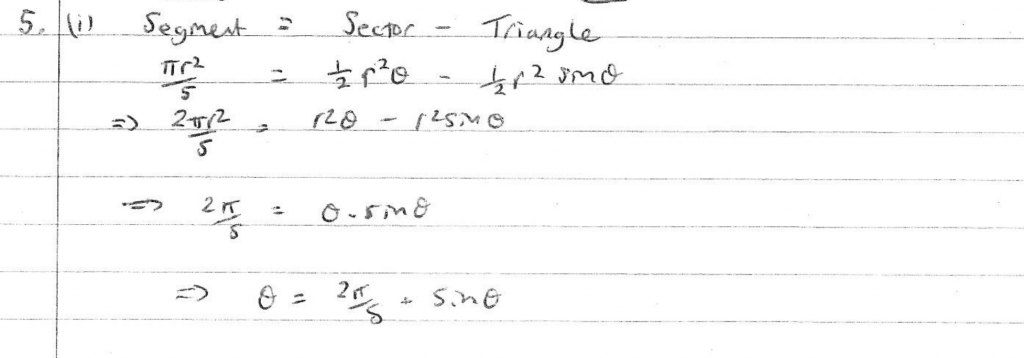 5. (i) Segment = Sector - Triangle
πr²/5 = ½r²θ - ½r² sinθ
=> 2πr²/5 = r²θ - r²sinθ
=> 2π/5 = θ - sinθ
=> θ = 2π/5 + sinθ